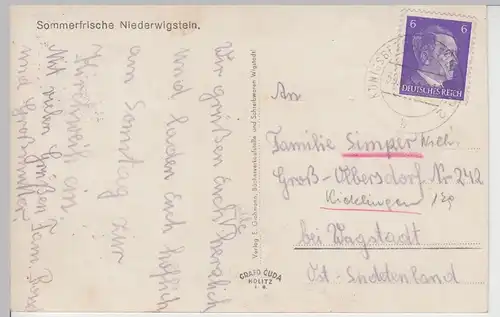 Sommerfrische Niederwigstein.
Wir grüßen Euch alle herzlich
und laden Euch höflich
am Sonntag zur
Kirchweih ein.
Mit vielen Grüßen Fam.
und Großmutter
Verlag E. Großmann, Buchverkaufsstelle und Schreibwaren Wigstadtl
GRAFO ČUDA
HOLITZ
6 6
DEUTSCHES REICH
An
Familie Simper
Groß-Olbersdorf Nr 242
bei Wagstadt
Ost-Sudetenland